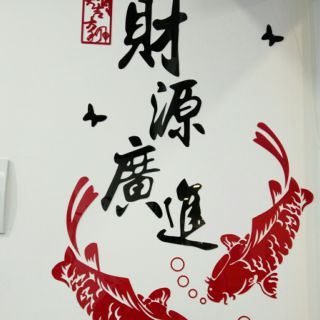 財源廣進